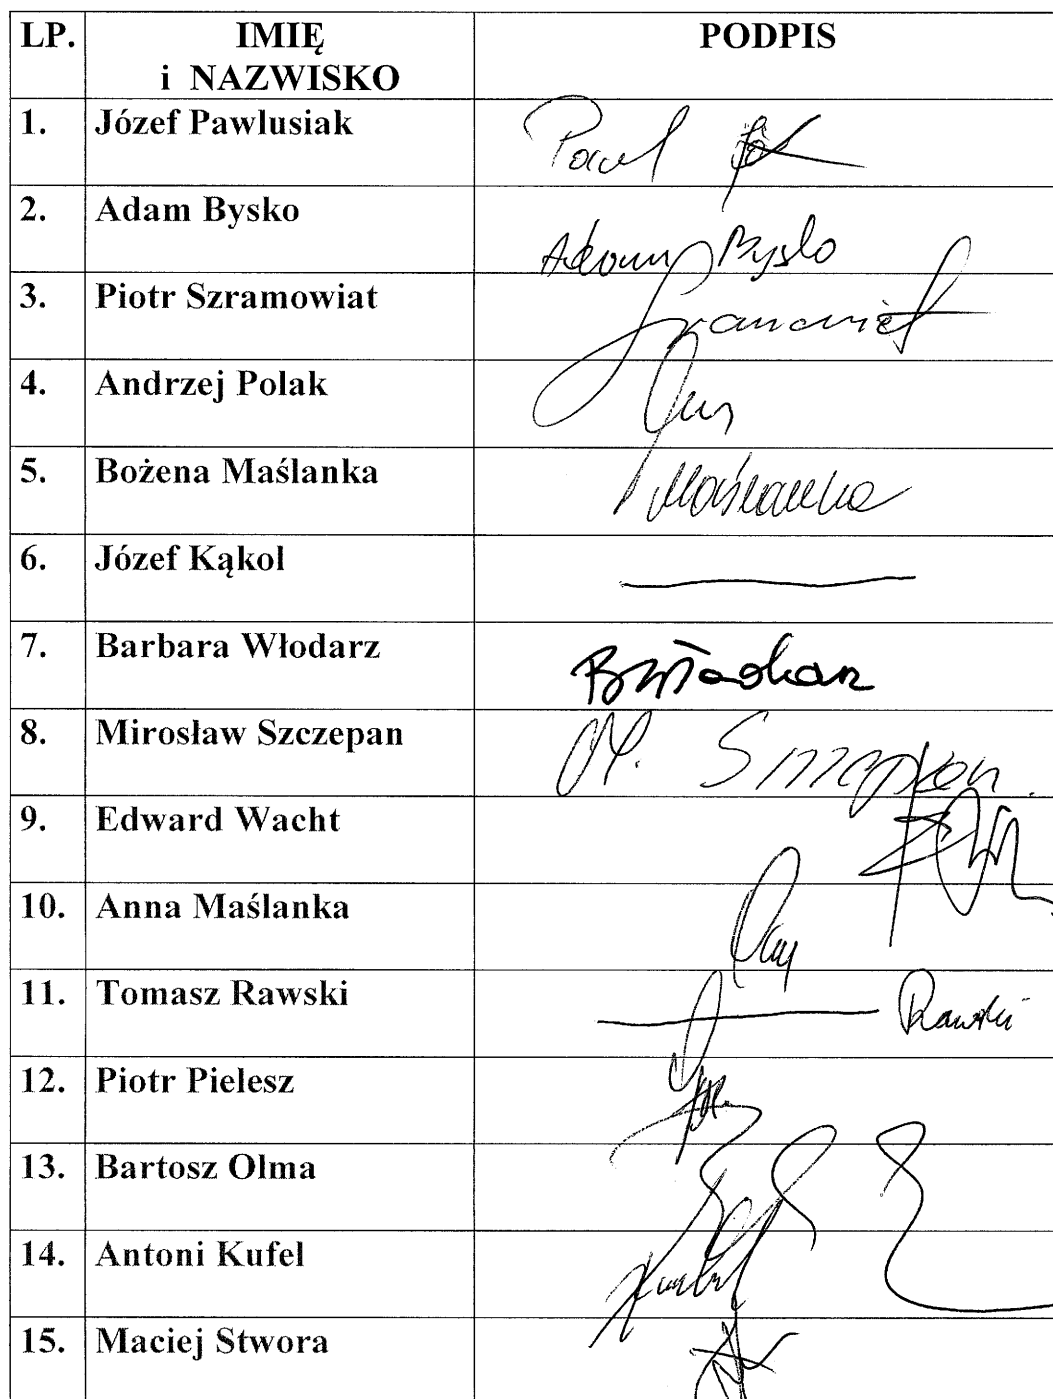 LP. IMIĘ PODPIS
i NAZWISKO
1. Józef Pawlusiak
2. Adam Bysko Adam Bysko
3. Piotr Szramowiat
4. Andrzej Polak
5. Bożena Maślanka Maślanka
6. Józef Kąkol
7. Barbara Włodarz
8. Mirosław Szczepan M. Szczepan
9. Edward Wacht
10. Anna Maślanka
11. Tomasz Rawski Rawski
12. Piotr Pielesz
13. Bartosz Olma
14. Antoni Kufel
15. Maciej Stwora